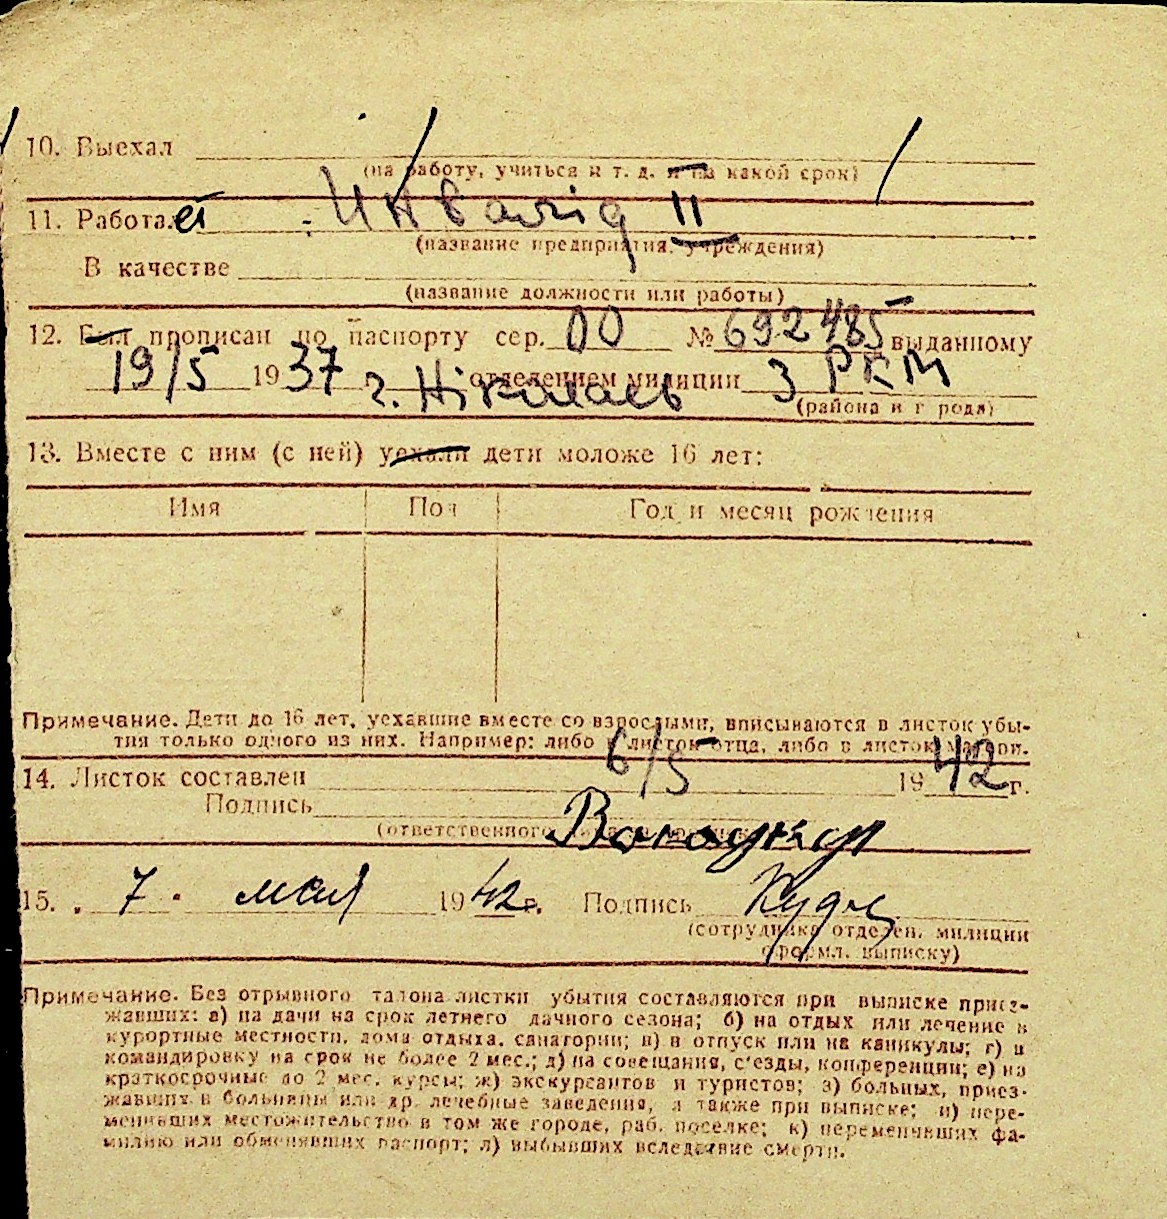 10. Выехал
(на работу, учиться и т. д. и на какой срок)
11. Работает Инвалід II
(название предприятия, учреждения)
В качестве
(название должности или работы)
12. Был прописан по паспорту сер. 00 № 692485 выданному
19/5 1937 г. Ніколаевь отделением милиции 3 РКМ
(района и города)
13. Вместе с ним (с ней) уехали дети моложе 16 лет:
Имя Пол Год и месяц рождения
Примечание. Дети до 16 лет, уехавшие вместе со взрослыми, вписываются в листок убы-
тия только одного из них. Например: либо в листок отца, либо в листок матери.
14. Листок составлен 6/5 1942 г.
Подпись
(ответственного
15. 7. мая 1942 г. Подпись
(сотрудника отделен. милиции
оформл. выписку)
Примечание. Без отрывного талона листки убытия составляются при выписке приез-
жавших: а) на дачи на срок летнего дачного сезона; б) на отдых или лечение в
курортные местности, дома отдыха, санатории; в) в отпуск или на каникулы; г) в
командировку на срок не более 2 мес.; д) на совещания, с'езды, конференции; е) на
краткосрочные до 2 мес. курсы; ж) экскурсантов и туристов; з) больных, приез-
жавших в больницы или др. лечебные заведения, а также при выписке; и) пере-
менивших местожительство в том же городе, раб. поселке; к) переменивших фа-
милию или обменявших паспорт; л) выбывших вследствие смерти.